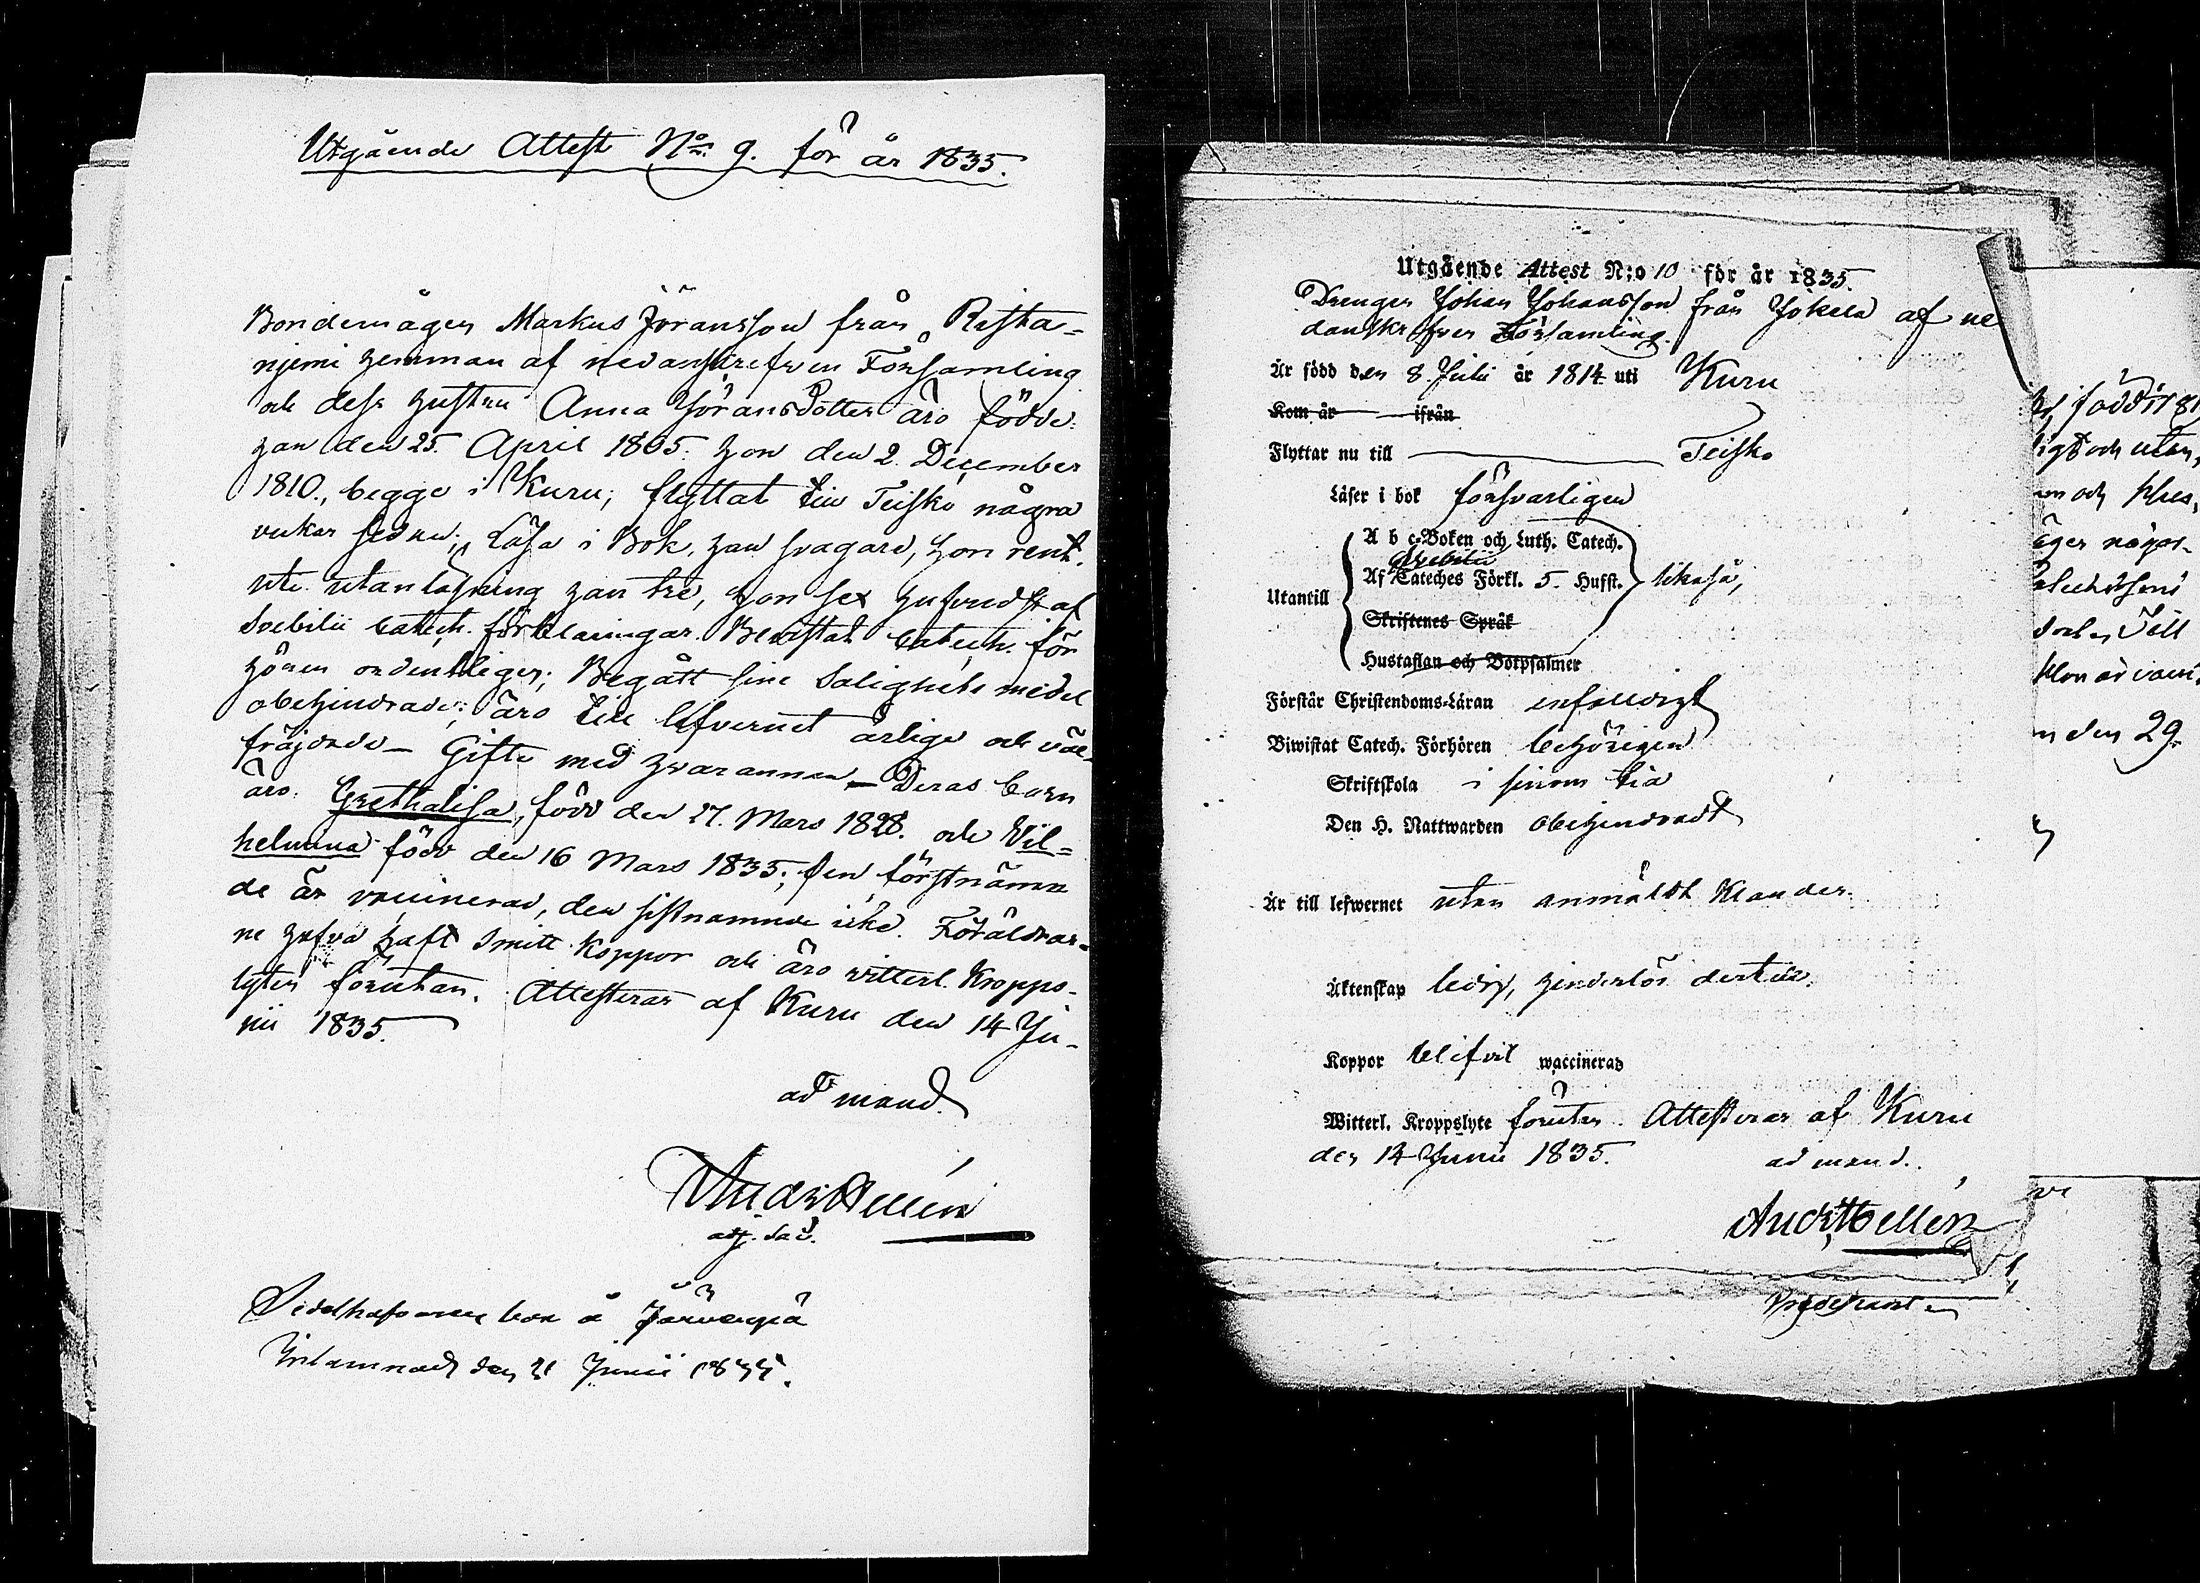 Utgående Attest N:ro 9. för år 1835.
Bondemågen Markus Jöransson från Rista-
njemi hemman af nedanskrefven Församling
och dess hustru Anna Jöransdotter äro födde:
han den 25. April 1805. hon den 2. December
1810., begge i Kuru; flyttat till Teisko några
veckor sedan; Läsa i Bok, han svagare, hon rent.
ute utanläsning han tre, hon sex hufvudst. af
Svebilii catech. förklaringar. Bevistat catech. för
hören ordentligen; Begått sine Salighets medel
obehindrade; äro till lefvernet ärlige och väl-
fräjdade – Gifte med hvarannan – Deras barn
äro. Grethalisa, född den 27. Mars 1828. och Vil=
helmina född den 16 Mars 1835; den förstnämn
de är vaccinerad, den sistnämnde icke. Föräldrar-
ne hafva haft Smitt Koppor och äro vitterl. Kropps-
lyten förutan. Attesteras af Kuru den 14 Ju-
nii 1835.
ad mand.
And. Hellén
adj. Sac.
bor å
Inlämnad den 21 Junii 1835.
Utgående Attest N:o 10 för år 1835.
Drengen Johan Johansson från Jokela af ne
danskrefven Församling.
Är född den 8 Julii år 1814 uti Kuru
Kom år ifrån
Flyttar nu till Teisko
Läser i bok försvarligen
A b c-Boken och Luth. Catech.
Svebilii
Utantill Af Cateches Förkl. 5. Hufst. likaså,
Skriftenes Språk
Hustaflan och Botpsalmer
Förstår Christendoms-Läran enfaldigt
Biwistat Catech. Förhören behörigen
Skriftskola i sinom tid
Den H. Nattwarden obehindradt
Är till lefwernet utan anmäldt klander.
Äktenskap ledig, hinderlös dertill.
Koppor blifvit waccinerad
Witterl. Kroppslyte förutan. Attesteras af Kuru
den 14 Junii 1835. ad mand.
And. Hellén
född 181
ligt och utan,
och
Till
n den 29.